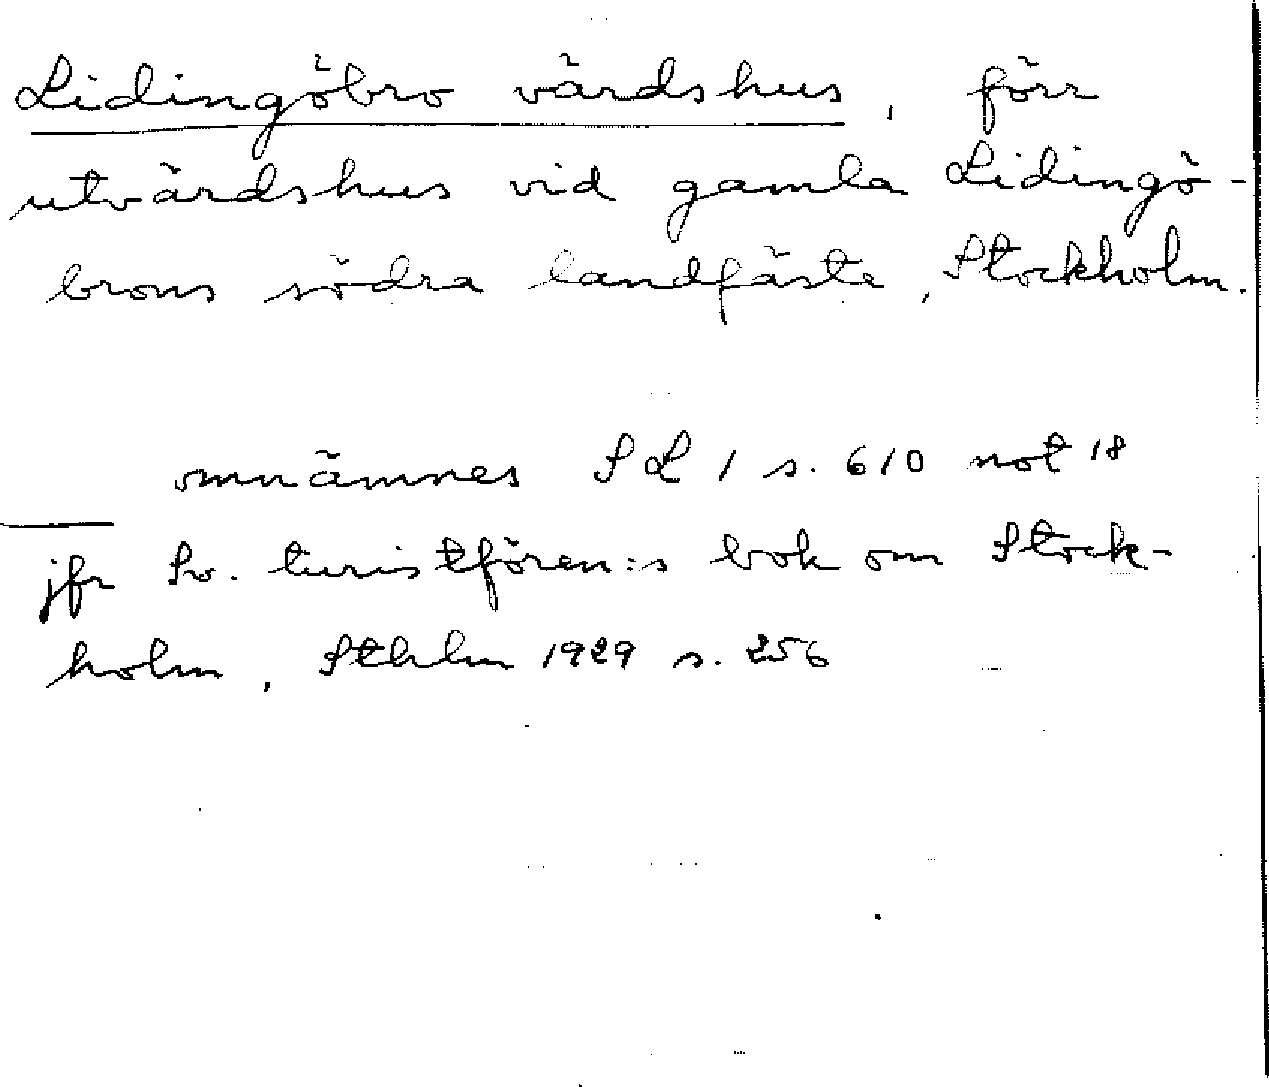 Lidingöbro värdshus, förr
utvärdshus vid gamla Lidingö-
brons södra landfäste, Stockholm.
omnämnes SL 1 s. 610 not 18
jfr Sv. turistfören:s bok om Stock-
holm, Sthlm 1929 s. 256